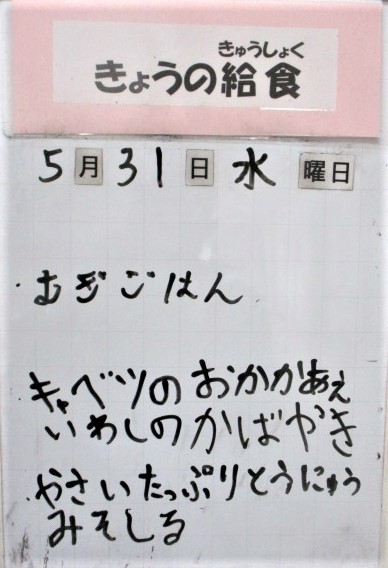 きゅうしょく
きょうの給食
5月31日 水 曜日
・むぎごはん
キャベツのおかかあえ
いわしのかばやき
・やさいたっぷりとうにゅう
みそしる